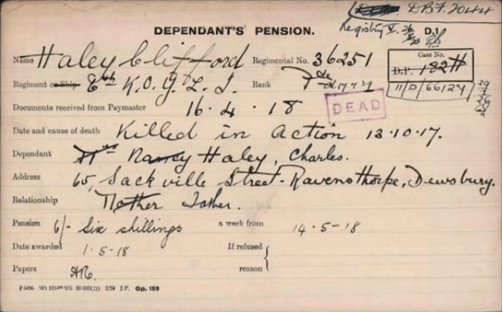 D.B.F. 2044
Registry V.
DEPENDANT'S PENSION.
D.1
Name Haley Clifford Regimental No. 36251
Case No.
Regiment or Ship 8th K.O.Y.L.I. Rank Pte
D.P. 182H
11/D/66127
Documents received from Paymaster 16.4.18
DEAD
Date and cause of death Killed in action 13.10.17.
Dependant Nancy Haley, Charles.
Address 65, Sackville Street. Ravensthorpe, Dewsbury.
Relationship Mother Father.
Pension 6/- Six shillings a week from 14-5-18
Date awarded 1-5-18 If refused
Papers reason
Gp. 159